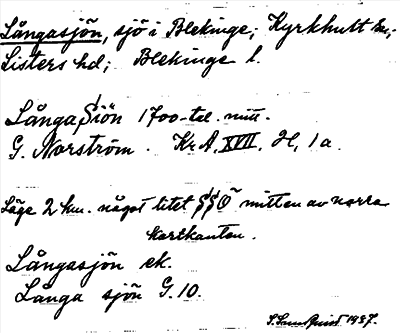 Långasjön, sjö i Blekinge; Kyrkhult sn;
Listers hd; Blekinge l.
Långa Siön 1700-tal. mitt.
G. Norström. Kr A, XVII, H, 1a.
Läge 2 km. något litet SSO mitten av norra
kartkanten.
Långasjön ek.
Långa sjön G. 10.
1937.